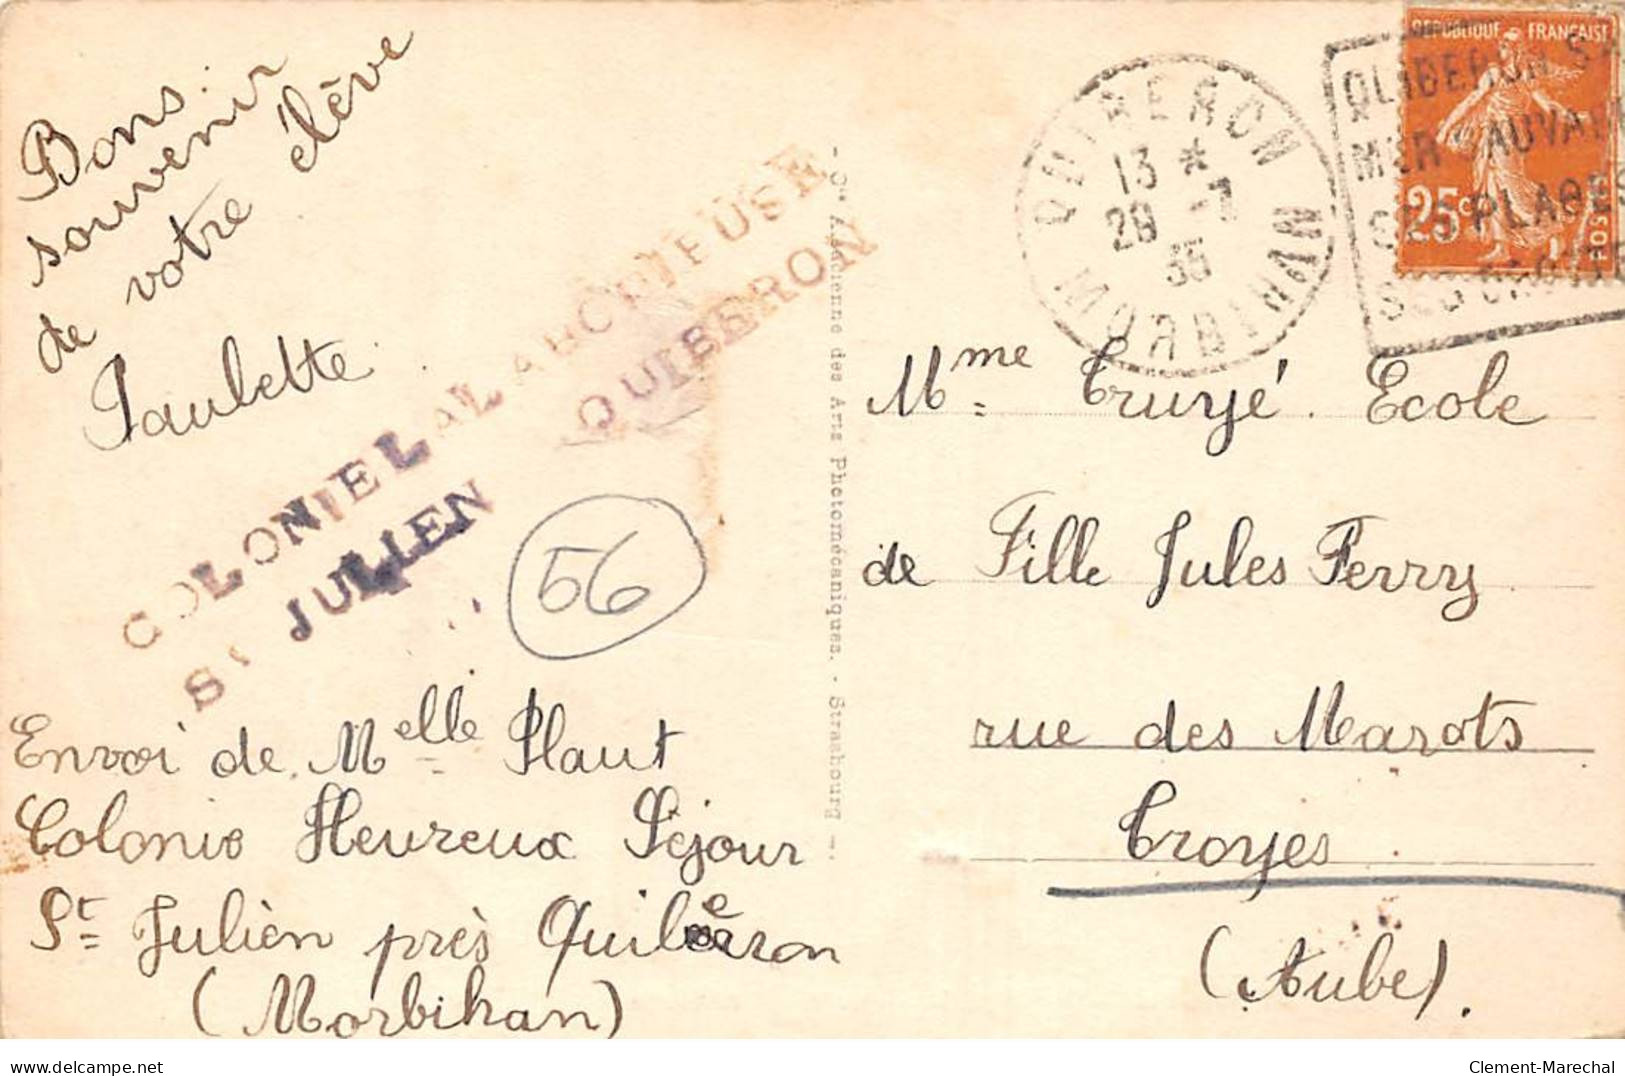 Bons
souvenir
de votre élève
Paulette
COLONIE L ALABORIEUSE
St JULIEN QUIBERON
56
Envoi de Melle Plaut
Colonie Heureux Séjour
St Julien près Quiberon
(Morbihan)
- Cie Alsacienne des Arts Photomécaniques. - Strasbourg -.
QUIBERON MORBIHAN
13 *
28 -7
35
QUIBERON SA
MER SAUVAGE
SES PLAGES
SES GROTTES
REPUBLIQUE FRANÇAISE
25c
POSTES
Mme Truyé. Ecole
de Fille Jules Ferry
rue des Marots
Troyes
(Aube).
Clement-Marechal